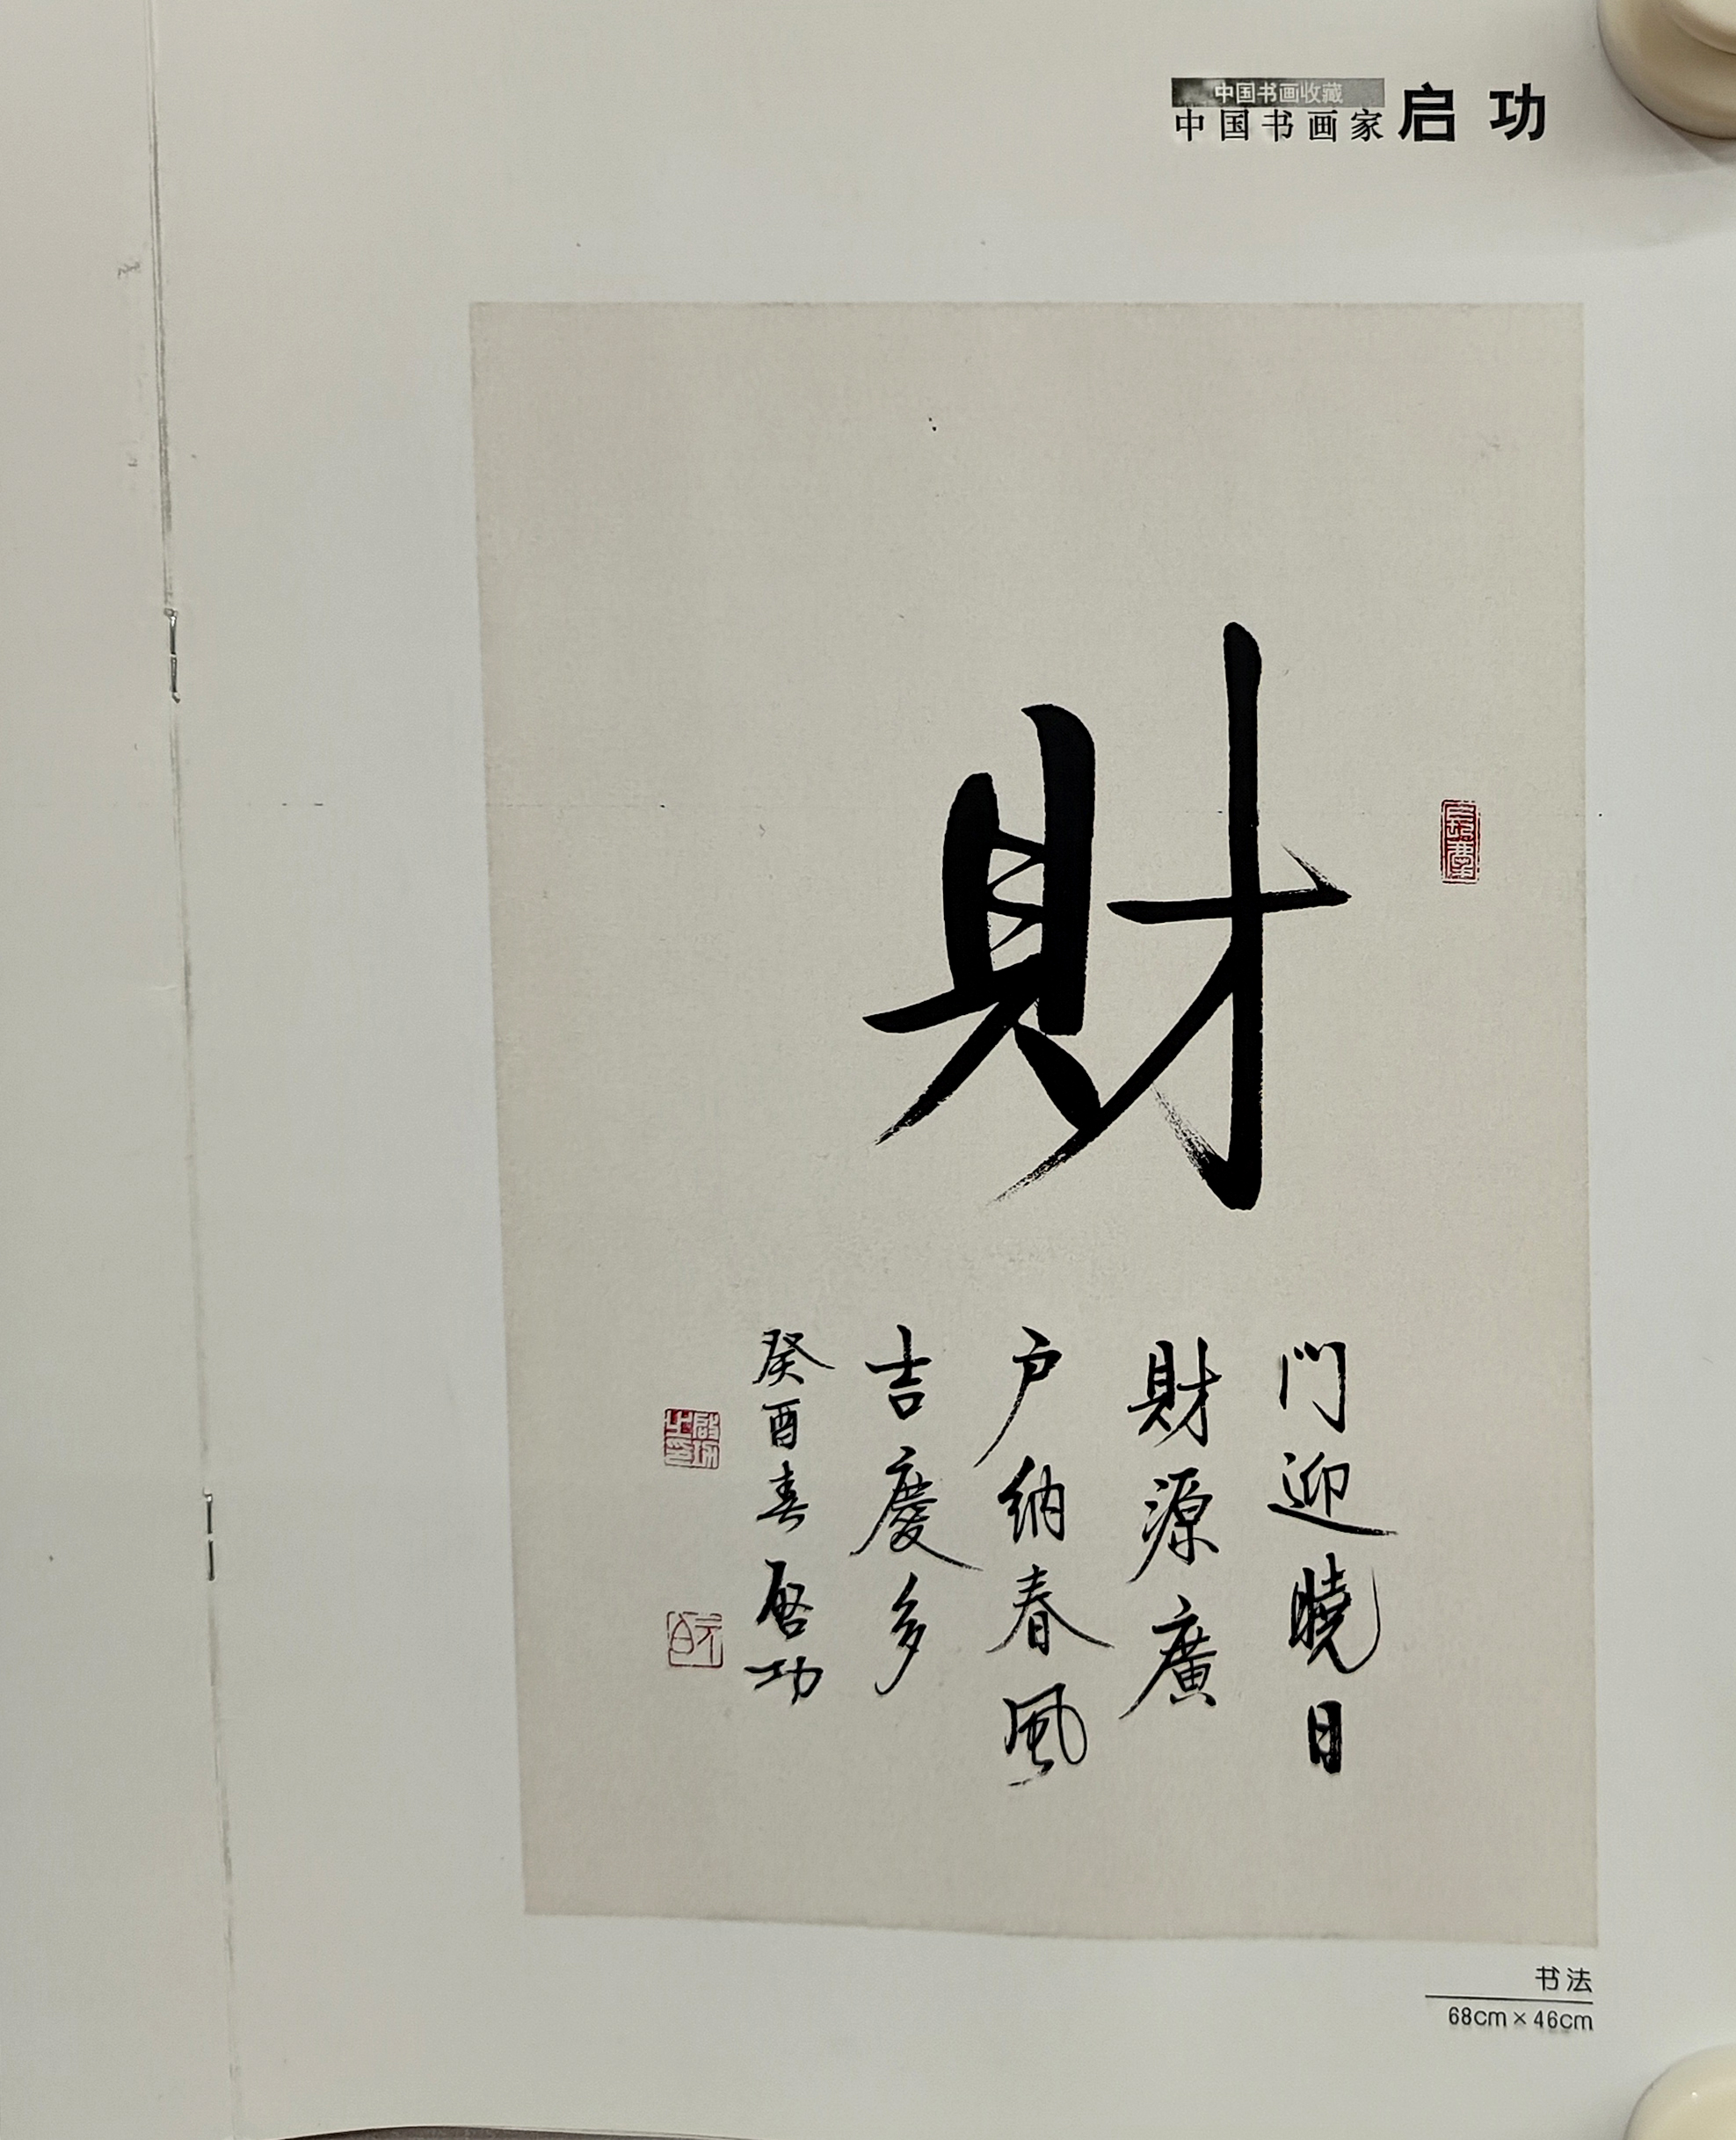 中国书画收藏
中国书画家 启功
財
門迎曉日
財源廣
户納春風
吉慶多
癸酉春 啓功
啟功之印
元白
书法
68cm×46cm